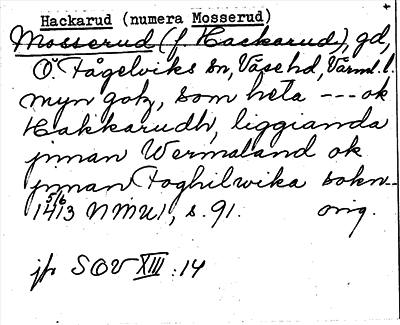 Hackarud (numera Mosserud)
Mosserud (f. Hackarud), gd,
Ö. Fågelviks sn, Väse hd, Värml. l.
myn gotz, som heta --- ok
Hakkarudh, liggianda
jnnan Wermaland ok
jnnan Foghilwika sokn--
1413 5/6 NMU1, s. 91. orig.
jfr SOV XIII:14